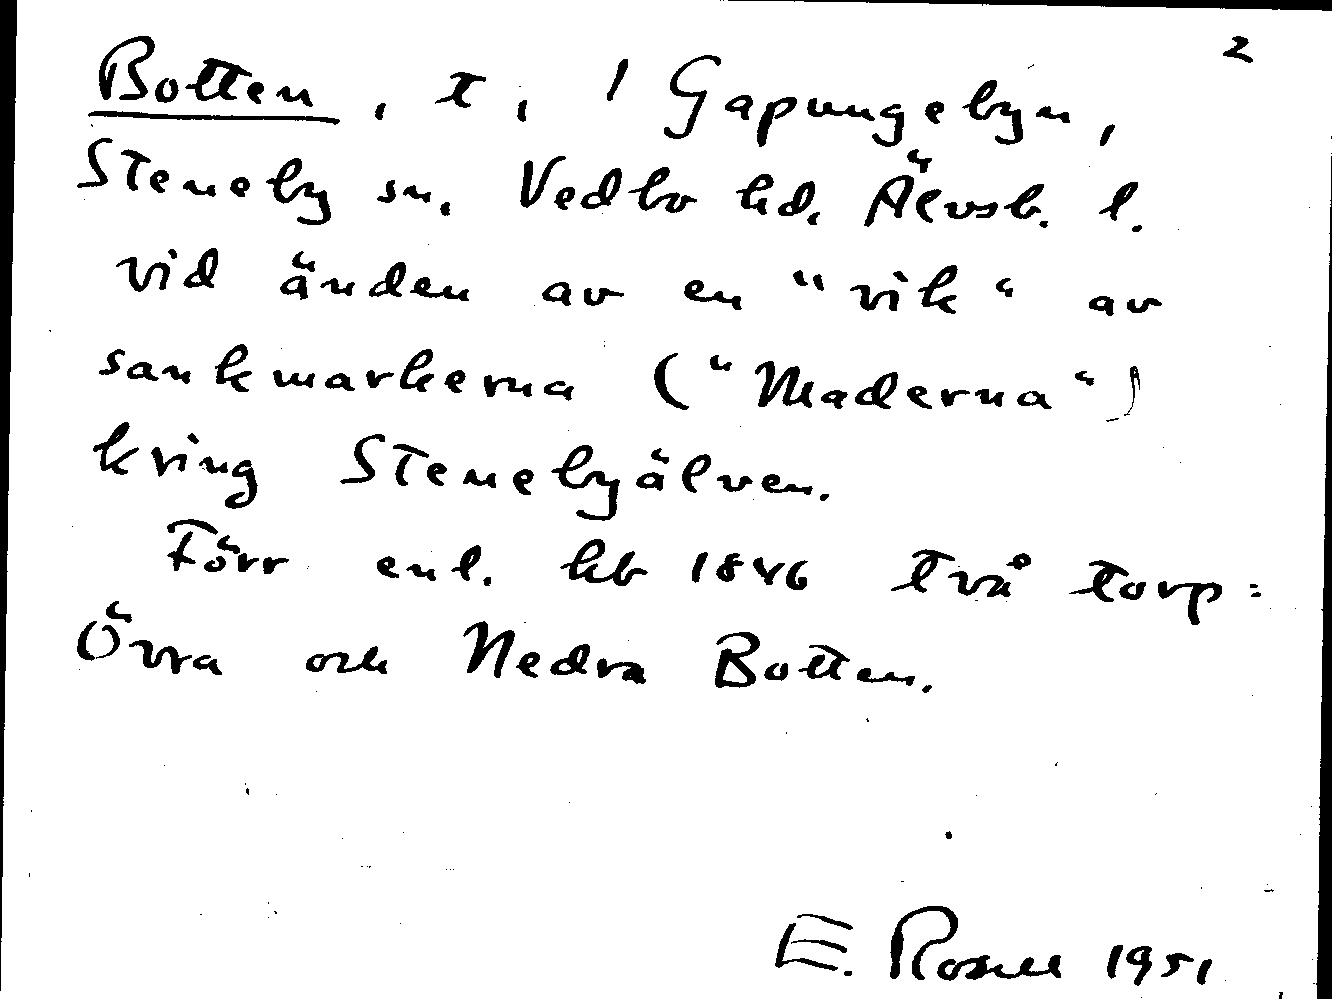 2
Botten, t, / Gapungebyn,
Steneby sn. Vedbo hd. Älvsb. l.
vid änden av en "vik" av
sankmarkerna ("Maderna")
kring Stenebyälven.
Förr enl. hb 1846 två torp:
Övra och Nedra Botten.
E. Rosell 1951